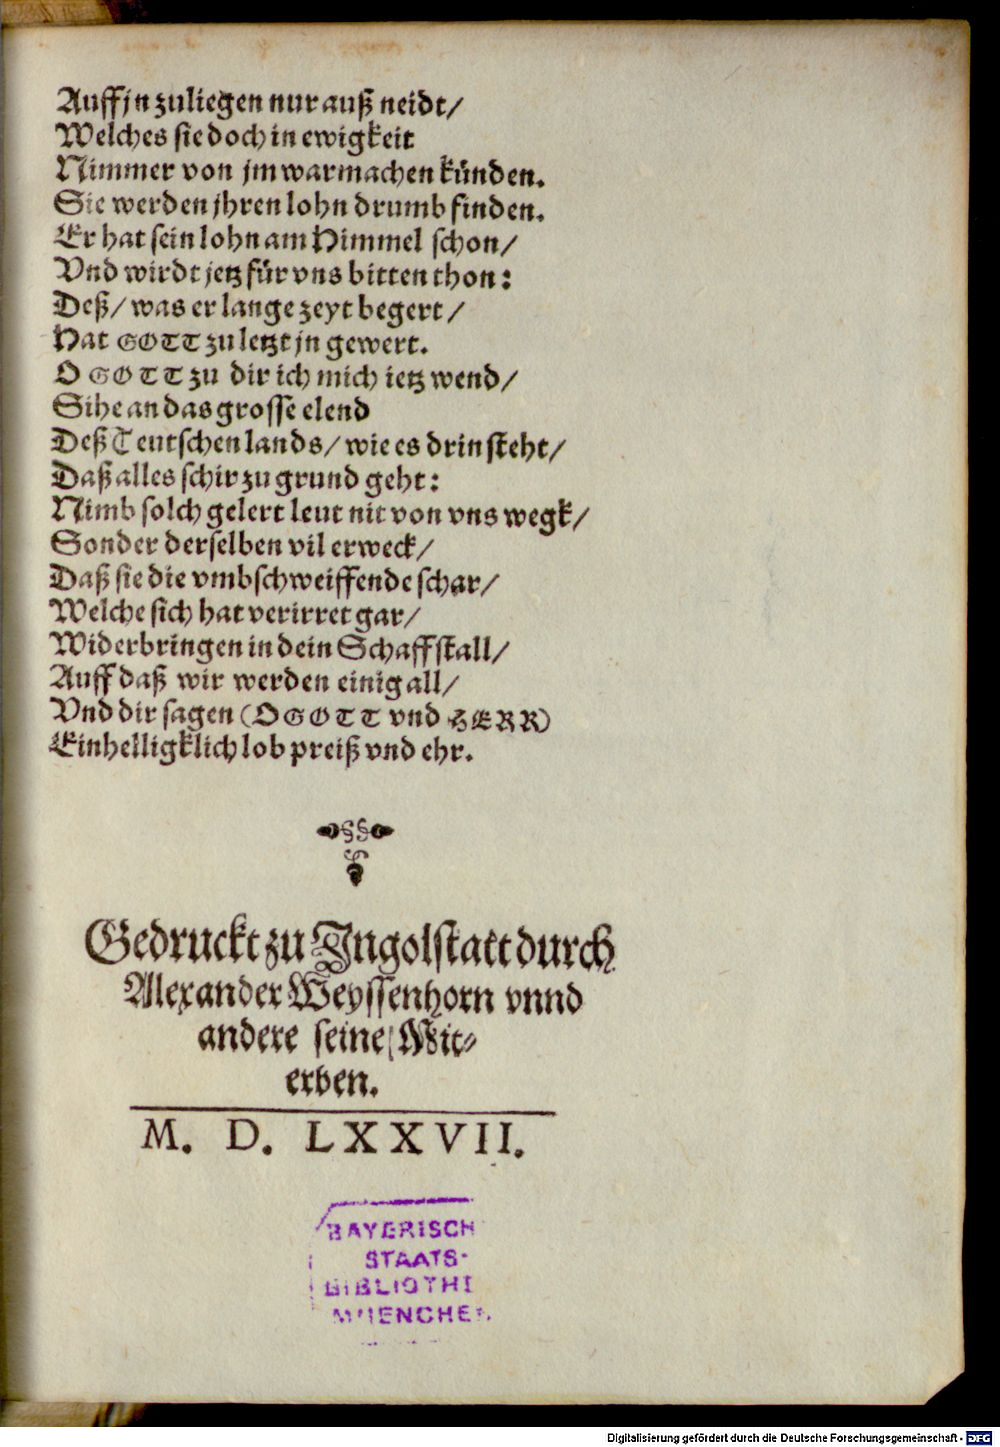 Auff jn zuliegen nur auß neidt/
Welches sie doch in ewigkeit
Nimmer von jm warmachen künden.
Sie werden jhren lohn drumb finden.
Er hat sein lohn am Himmel schon/
Vnd wirdt jetz für vns bitten thon:
Deß/ was er lange zeyt begert/
Hat GOTT zu letzt jn gewert.
O GOTT zu dir ich mich ietz wend/
Sihe an das grosse elend
Deß Teutschenlands/ wie es drin steht/
Daß alles schir zu grund geht:
Nimb solch gelert leut nit von vns wegk/
Sonder derselben vil erweck/
Daß sie die vmbschweiffende schar/
Welche sich hat verirret gar/
Widerbringen in dein Schaffstall/
Auff daß wir werden einig all/
Vnd dir sagen (O GOTT vnd HERR)
Einhelligklich lob preiß vnd ehr.
Gedruckt zu Ingolstatt durch
Alexander Weyssenhorn vnnd
andere seine Mit-
erben.
M. D. LXXVII.
BAYERISCH
STAATS-
BIBLIOTHE
MUENCHEN
Digitalisierung gefördert durch die Deutsche Forschungsgemeinschaft - DFG